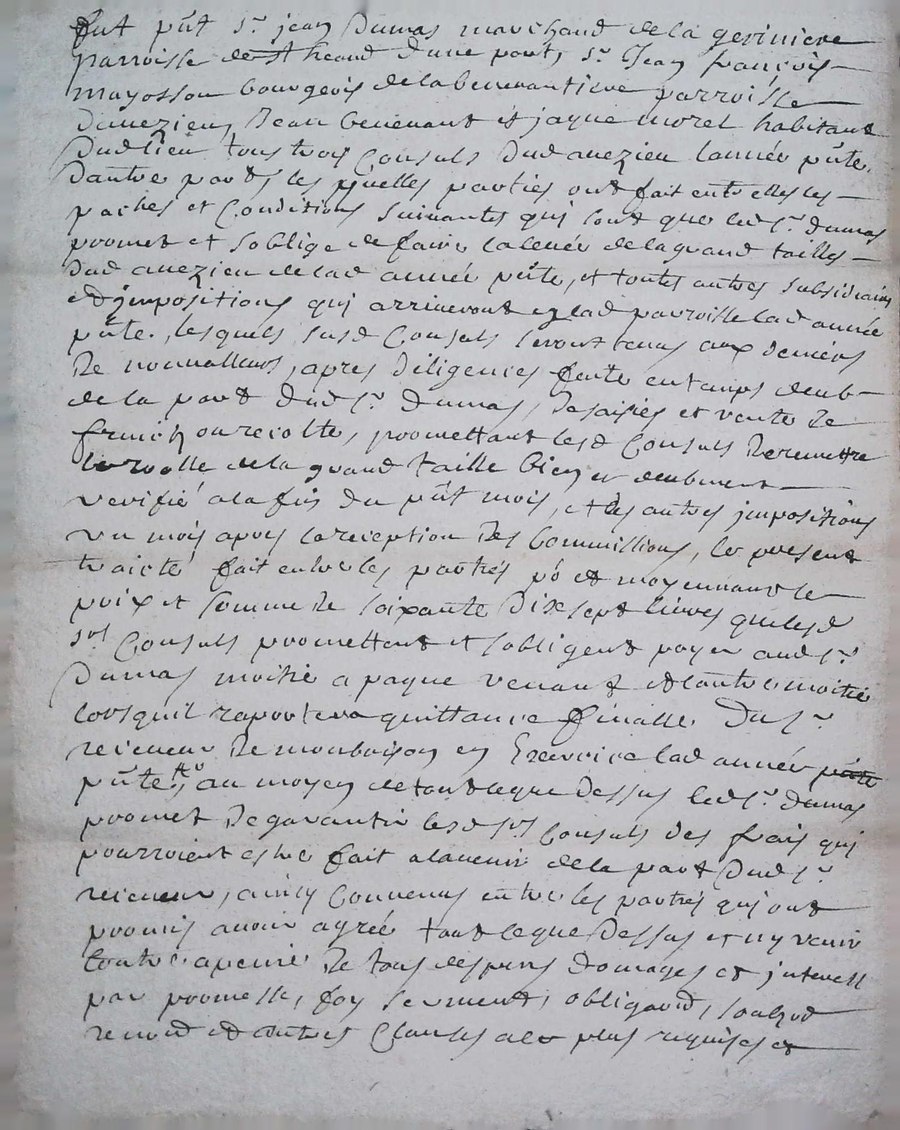 fut pñt sr jean Dumas marchand de la geriniere
parroisse de st heand d'une part, sr Jean françois
mayosson bourgeois de la benevantiere parroisse
davezieu, Jean benevant et jaque morel habitant
Dud lieu tous trois Consuls Dud avezieu lannée pñte,
Dautre part, les quelles parties ont fait entre elles les
paches et Conditions suivantes qui sont que led sr dumas
promet et soblige de faire la levée de la grand tailles
Dud avezieu de lad année pñte, et toutes autres subsidiaires
et jmpositions qui arriveront en lad parroisse lad année
pñte, lesquels susd Consuls seront tenus aux deniers
De nonvalleurs, apres Diligences faite en temps deub
de la part Dud sr Dumas, De saisies et vente De
fruicts ou recolte, promettant lesd Consuls De remettre
le rolle de la grand taille bien et deubment
verifié a la fin du pñt mois, et les autres jmpositions
un mois apres la reception Des Commissions, le present
traicté fait entre les parties po et moyennant le
prix et somme De soixante Dix sept livres que lesd
srs Consuls promettent et sobligent payer aud sr
Dumas moitié a paque venant et l'autre moitié
lorsquil raportera quittance finalle Du sr
receveur De monbrison en Exercice lad année pñte
pñte, au moyen de tout ce que Dessus led sr dumas
promet De garantir lesd srs Consuls des frais qui
pourroient estre fait a lavenir de la part Dud sr
receveur, ainsy Convenus entre les parties qui ont
promis avoir agréé tout ce que Dessus et ny venir
Contre a peine De tous despens Domages et jnterest
par promesse, foy serment, obligaōn, soubzōn
renonōn et autres Clauses a ce plus requises et